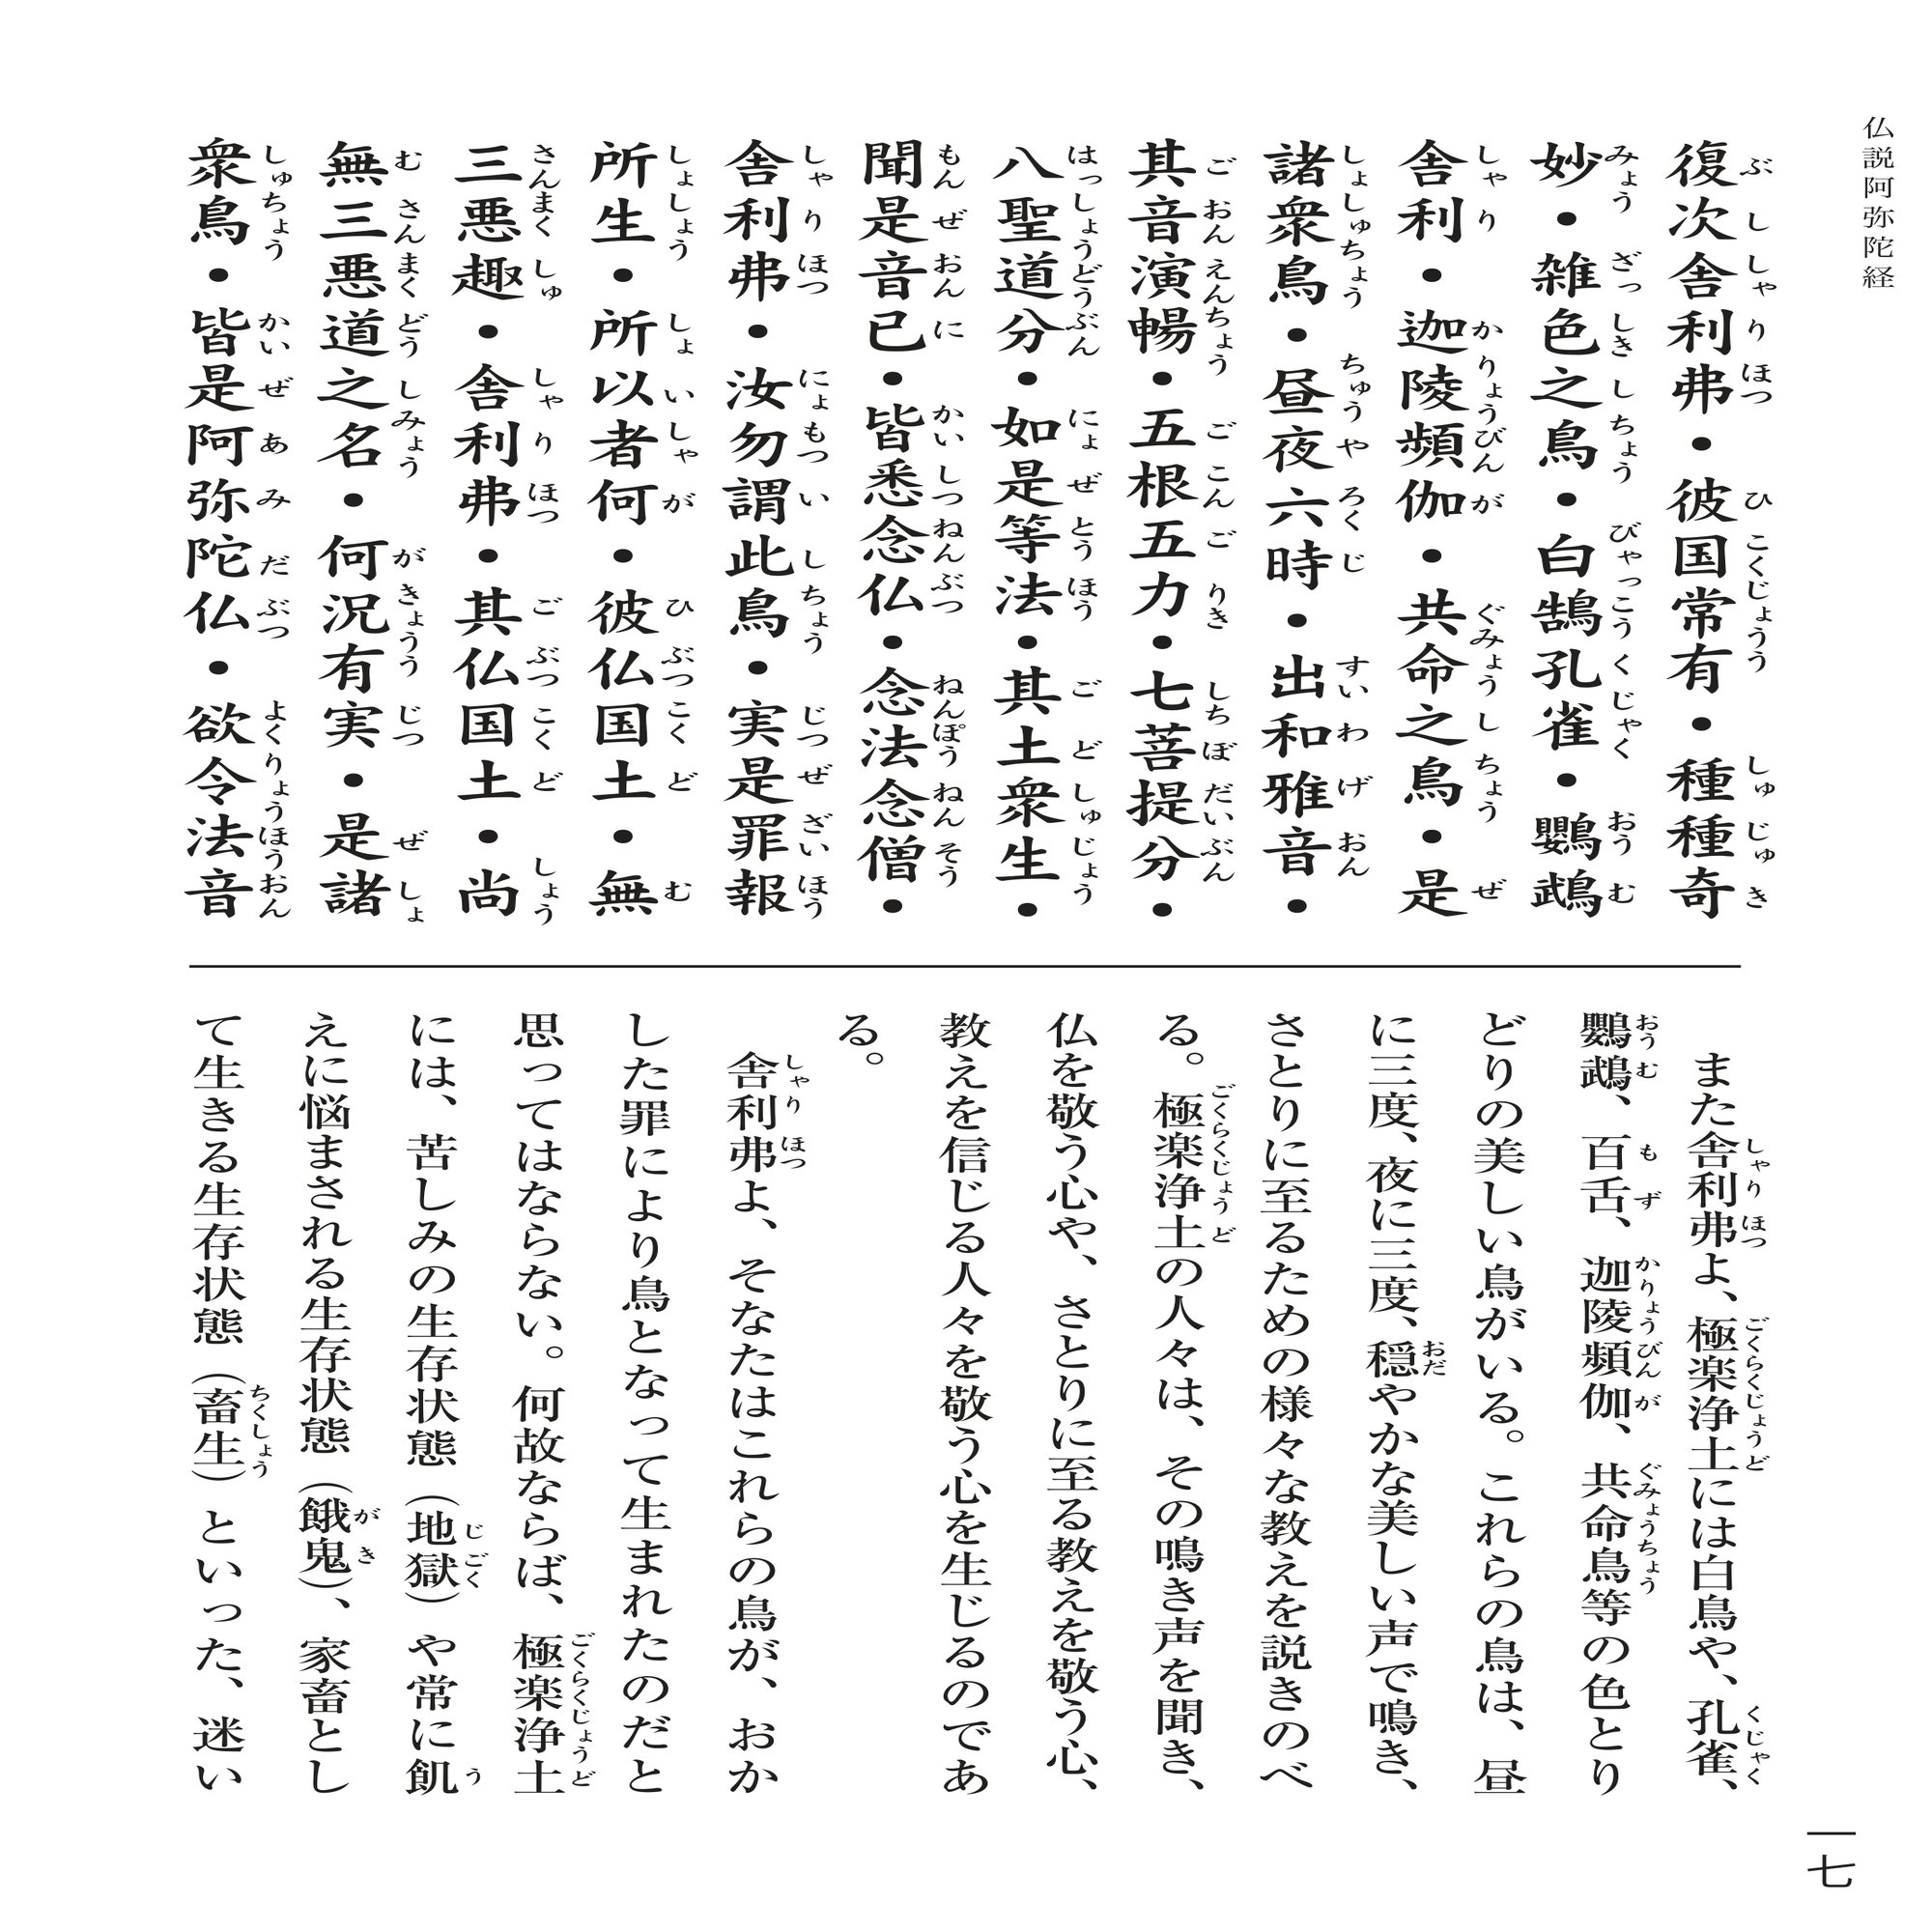 仏説阿弥陀経
復次舎利弗・彼国常有・種種奇
妙・雑色之鳥・白鵠孔雀・鸚鵡
舎利・迦陵頻伽・共命之鳥・是
諸衆鳥・昼夜六時・出和雅音・
其音演暢・五根五力・七菩提分・
八聖道分・如是等法・其土衆生・
聞是音已・皆悉念仏・念法念僧・
舎利弗・汝勿謂此鳥・実是罪報
所生・所以者何・彼仏国土・無
三悪趣・舎利弗・其仏国土・尚
無三悪道之名・何況有実・是諸
衆鳥・皆是阿弥陀仏・欲令法音
また舎利弗よ、極楽浄土には白鳥や、孔雀、
鸚鵡、百舌、迦陵頻伽、共命鳥等の色とり
どりの美しい鳥がいる。これらの鳥は、昼
に三度、夜に三度、穏やかな美しい声で鳴き、
さとりに至るための様々な教えを説きのべ
る。極楽浄土の人々は、その鳴き声を聞き、
仏を敬う心や、さとりに至る教えを敬う心、
教えを信じる人々を敬う心を生じるのであ
る。
舎利弗よ、そなたはこれらの鳥が、おか
した罪により鳥となって生まれたのだと
思ってはならない。何故ならば、極楽浄土
には、苦しみの生存状態（地獄）や常に飢
えに悩まされる生存状態（餓鬼）、家畜とし
て生きる生存状態（畜生）といった、迷い
一七